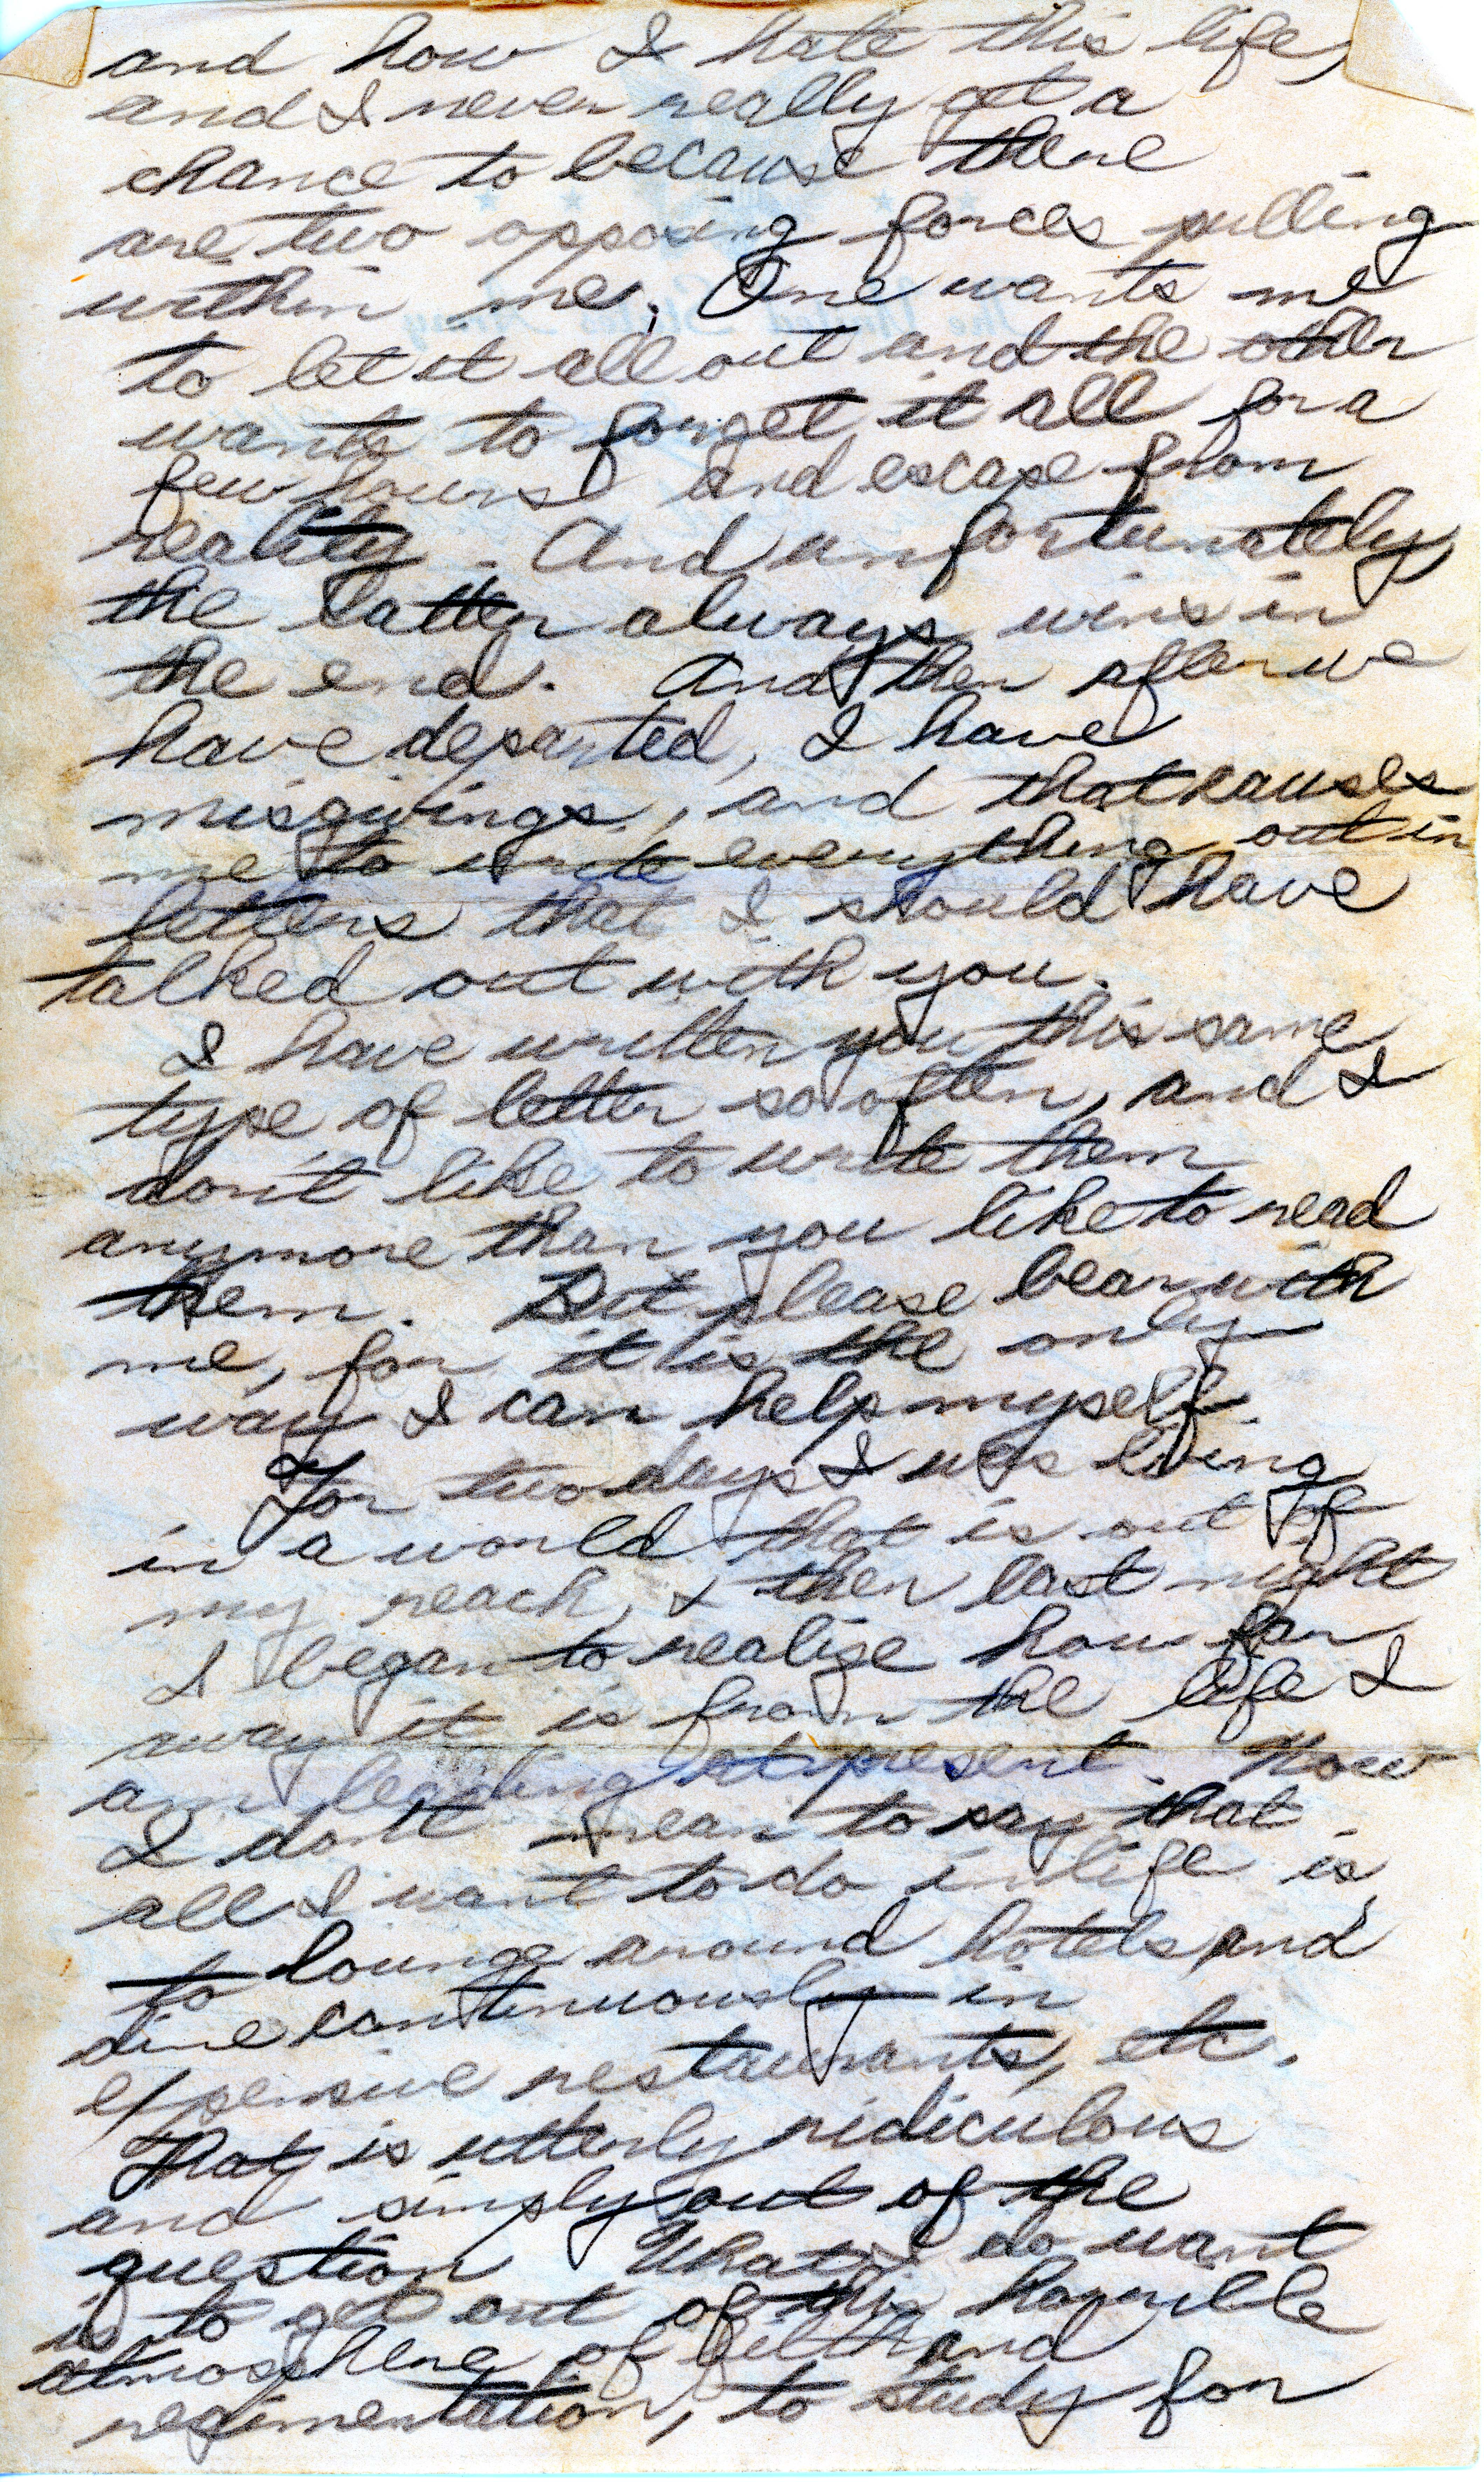 and how I hate this life,
and I never really get a
chance to because there
are two opposing forces pulling
within me. One wants me
to let it all out and the other
wants to forget it all for a
few hours and escape from
reality. And unfortunately,
the latter always wins in
the end. And then after we
have departed, I have
misgivings, and that causes
me to write everything out in
letters that I should have
talked out with you.
I have written you this same
type of letter so often, and I
don't like to write them
anymore than you like to read
them. But please bear with
me, for it is the only
way I can help myself.
For two days I was living
in a world that is out of
my reach, & then last night
I began to realize how far
away it is from the life I
am leading at present. Now
I don't mean to say that
all I want to do in life is
to lounge around hotels and
dine continuously in
expensive restaurants, etc.
That is utterly ridiculous
and simply out of the
question What I do want
is to get out of this horrible
atmosphere of filth and
regimentation, to study for